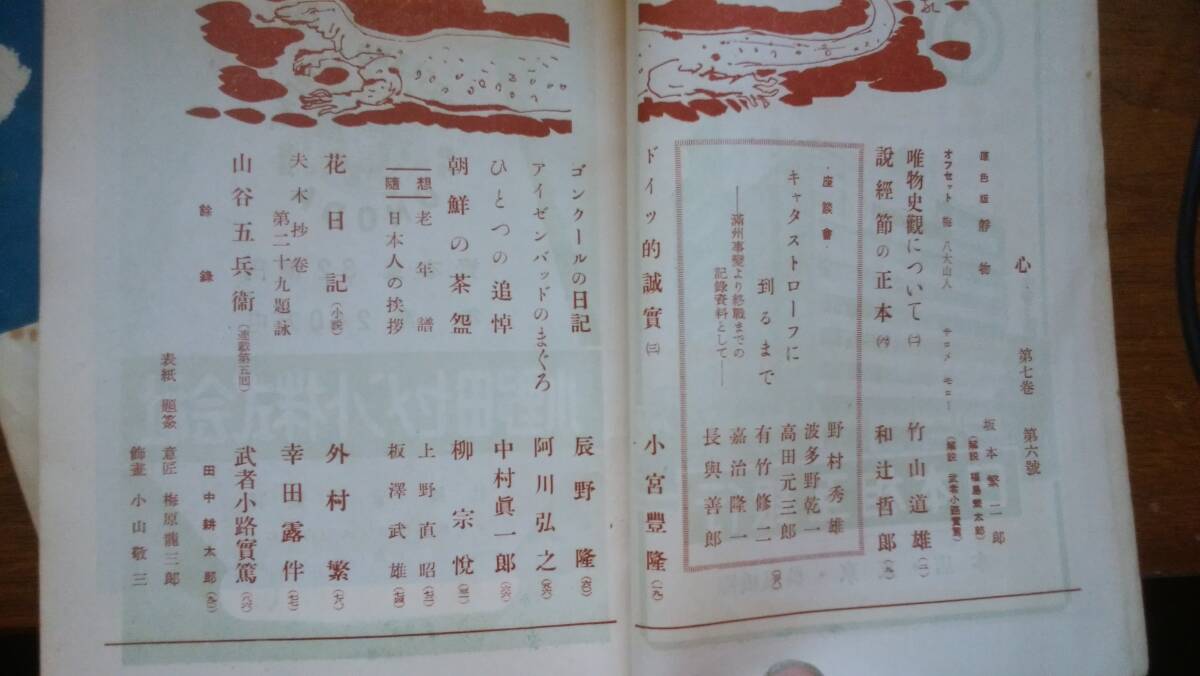 心
第七卷 第六號
原色版 靜物 坂本繁二郎
(解説 福島繁太郎)
オフセット 八大山人
(解説 武者小路實篤)
唯物史觀について(二) 竹山道雄(二)
說經節の正本(六) 和辻哲郎(九)
・座談會・
キャタストローフに
到るまで
——滿州事變より終戰までの
記錄資料として——
野村秀雄
波多野乾一
高田元三郎
有竹修二
嘉治隆一
長與善郎
ドイツ的誠實(三) 小宮豐隆(一九)
ゴンクールの日記 辰野隆(六〇)
アイゼンバッドのまぐろ 阿川弘之
ひとつの追悼 中村眞一郎
朝鮮の茶盌 柳宗悅
想隨
老年譜 上野直昭
日本人の挨拶 板澤武雄
花日記(小說) 外村繁
夫木抄卷第二十九題詠 幸田露伴
山谷五兵衞(連載第五回) 武者小路實篤(八六)
餘錄 田中耕太郎
表紙 題簽
意匠 梅原龍三郎
飾畫 小山敬三